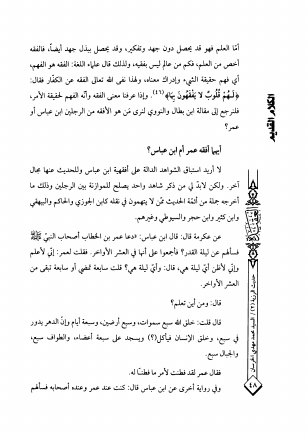 أمّا العلم فهو قد يحصل دون جهد وتفكير، وقد يحصل ببذل جهد أيضاً، فالفقه
أخص من العلم، فكم من عالم ليس بفقيه، ولذلك قال علماء اللغة: الفقه هو الفهم،
أي فهم حقيقة الشيء وإدراك معناه، ولهذا نفى الله تعالى الفقه عن الكفّار فقال:
﴿لَهُمْ قُلُوبٌ لا يَفْقَهُونَ بِهَا﴾(٤٦). وإذا عرفنا معنى الفقه وأنّه الفهم لحقيقة الأمر،
فلنرجع إلى مقالة ابن بطال والنووي لنرى مَن هو الأفقه من الرجلين ابن عباس أو
عمر؟
أيهما أفقه عمر أم ابن عباس؟
لا أريد استباق الشواهد الدالة على أفقهية ابن عباس وللحديث عنها مجال
آخر. ولكن لابدّ لي من ذكر شاهد واحد يصلح للموازنة بين الرجلين وذلك ما
أخرجه جملة من أئمّة الحديث ممّن لا يتهمون في نقله كابن الجوزي والحاكم والبيهقي
وابن كثير وابن حجر والسيوطي وغيرهم.
عن عكرمة قال: قال ابن عباس: «دعا عمر بن الخطاب أصحاب النبيّ ﷺ
فسألهم عن ليلة القدر؟ فأجمعوا على أنها في العشر الأواخر. فقلت لعمر: إنّي لأعلم
وإنّي لأظن أيّ ليلة هي، قال: وأيّ ليلة هي؟ قلت سابعة تمضي أو سابعة تبقى من
العشر الأواخر.
قال: ومن أين تعلم؟
قال قلت: خلق الله سبع سموات، وسبع أرضين، وسبعة أيام وإنّ الدهر يدور
في سبع، وخلق الإنسان فيأكل(؟) ويسجد على سبعة أعضاء، والطواف سبع،
والجبال سبع.
فقال عمر لقد فطنت لأمر ما فطنّا له.
وفي رواية أخرى عن ابن عباس قال: كنت عند عمر وعنده أصحابه فسألهم
الكلام القديم
حديث الرزية (٢) / السيد محمد مهدي الخرسان
٤٨